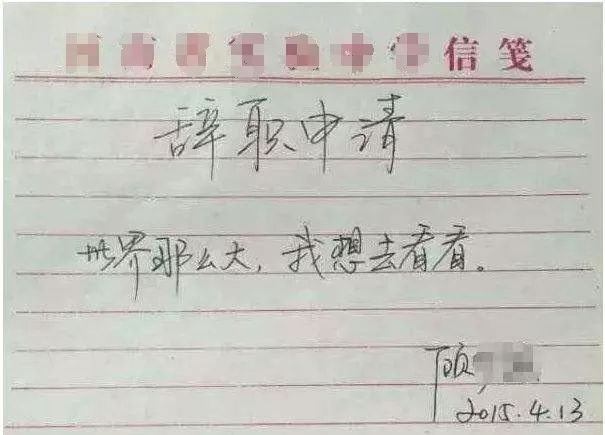 信笺
辞职申请
世界那么大，我想去看看。
顾
2015.4.13